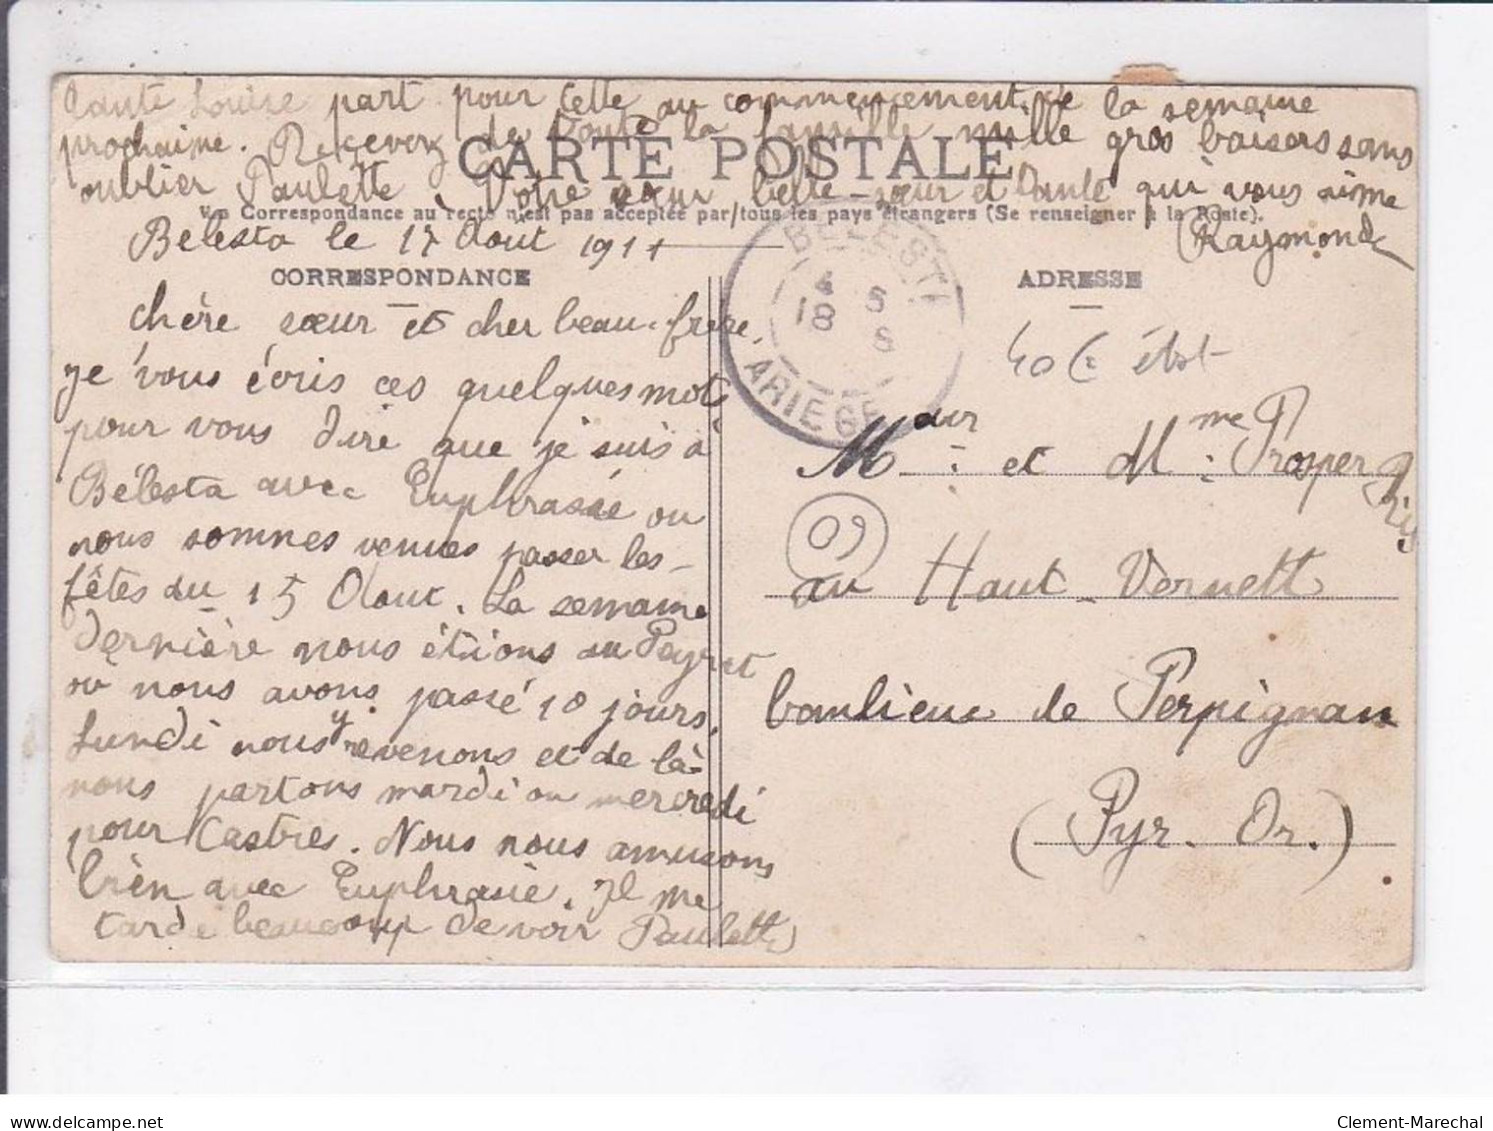 Tante Louise part pour Cette au commencement de la semaine
prochaine. Recevez de toute la famille mille gros baisers sans
CARTE POSTALE
oublier Paulette. Votre sœur belle-sœur et tante qui vous aime
La Correspondance au recto n'est pas acceptée par tous les pays étrangers (Se renseigner à la Poste).
Raymonde
Bélesta le 17 Aout 1911
CORRESPONDANCE
chère sœur et cher beau-frère,
Je vous écris ces quelques mots
pour vous dire que je suis à
Bélesta avec Euphrasie ou
nous sommes venues passer les
fêtes du 15 Aout. La semaine
dernière nous étions au Peyrat
où nous avons passé 10 jours.
Lundi nous y revenons et de là
nous partons mardi ou mercredi
pour Castres. Nous nous amusons
bien avec Euphrasie. Il me
tarde beaucoup de voir Paulette
BELESTA
4 5
18 8
ARIEGE
ADRESSE
M aur. et Mme. Prosper
09
au Haut-Vernett
banlieue de Perpignan
(Pyr. Or.)
www.delcampe.net
Clement-Marechal